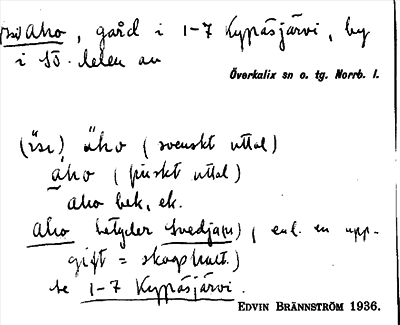 (isi) aho, gård i 1-7 Kypäsjärvi, by
i SÖ. delen av
Överkalix sn o. tg. Norrb. l.
(ìsı) äho (svenskt uttal)
äho (finskt uttal)
aho bek, ek.
aho betyder svedja(n), enl. en upp-
gift = skogshult.)
se 1-7 Kypäsjärvi.
EDVIN BRÄNNSTRÖM 1936.